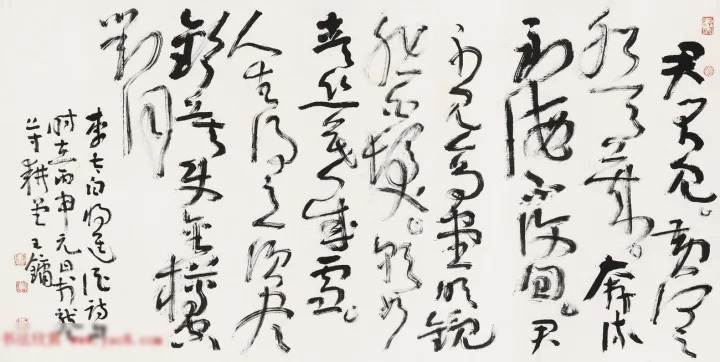 君不見黃河之
水天上來奔流
到海不復回君
不見高堂明鏡
悲白髮朝如
青絲暮成雪
人生得意須盡
歡莫使金樽空
對月
李太白將進酒詩
時在丙申元日書於
寸耕堂王鏞